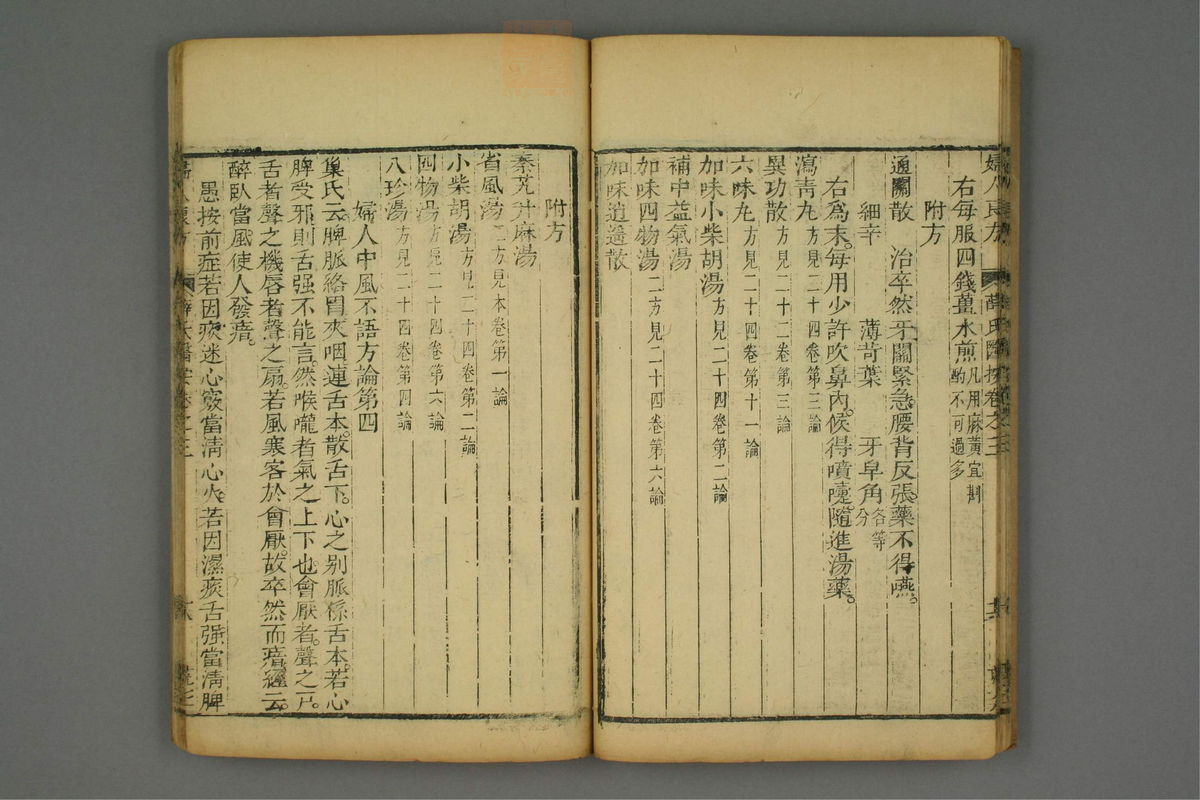 婦人良方 薛氏醫按卷之三
右每服四錢薑水煎凡用麻黃宜斟酌不可過多
附方
通關散 治卒然牙關緊急腰背反張藥不得嚥。
細辛 薄苛葉 牙皁角各等分
右爲末。每用少許吹鼻內。候得噴嚏。隨進湯藥。
瀉靑丸方見二十四卷第三論
異功散方見二十二卷第三論
六味丸方見二十四卷第十一論
加味小柴胡湯方見二十四卷第二論
補中益氣湯
加味四物湯二方見二十四卷第六論
加味逍遥散
附方
秦艽升麻湯
省風湯二方見本卷第一論
小柴胡湯方見二十四卷第二論
四物湯方見二十四卷第六論
八珍湯方見二十四卷第四論
婦人中風不語方論第四
巢氏云。脾脈絡胃夾咽連舌本。散舌下。心之别脈係舌本。若心
脾受邪。則舌强不能言。然喉嚨者氣之上下也。會厭者。聲之戸。
舌者聲之機。唇者聲之扇。若風寒客於會厭。故卒然而瘖。經云。
醉臥當風使人發瘖。
愚按前症若因痰迷心竅當淸心火。若因濕痰舌强當淸脾